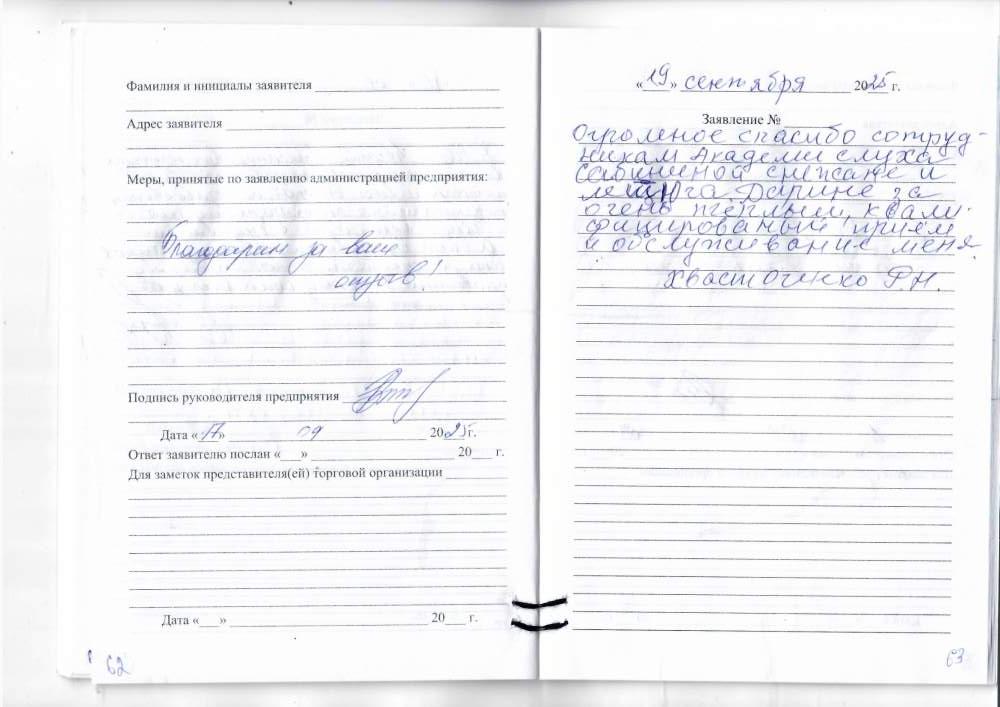 Фамилия и инициалы заявителя
Адрес заявителя
Меры, принятые по заявлению администрацией предприятия:
Благодарим за ваш
отзыв!
Подпись руководителя предприятия
Дата «17» 09 2025 г.
Ответ заявителю послан «__» 20__ г.
Для заметок представителя(ей) торговой организации
Дата «__» 20__ г.
62
«19» сентября 2025 г.
Заявление №
Огромное спасибо сотруд-
никам Академи слуха
Снежане и
Дарине за
очень теплый, квали-
фицированый приём
и обслуживание меня.
Хвасточенко Р.Н.
63